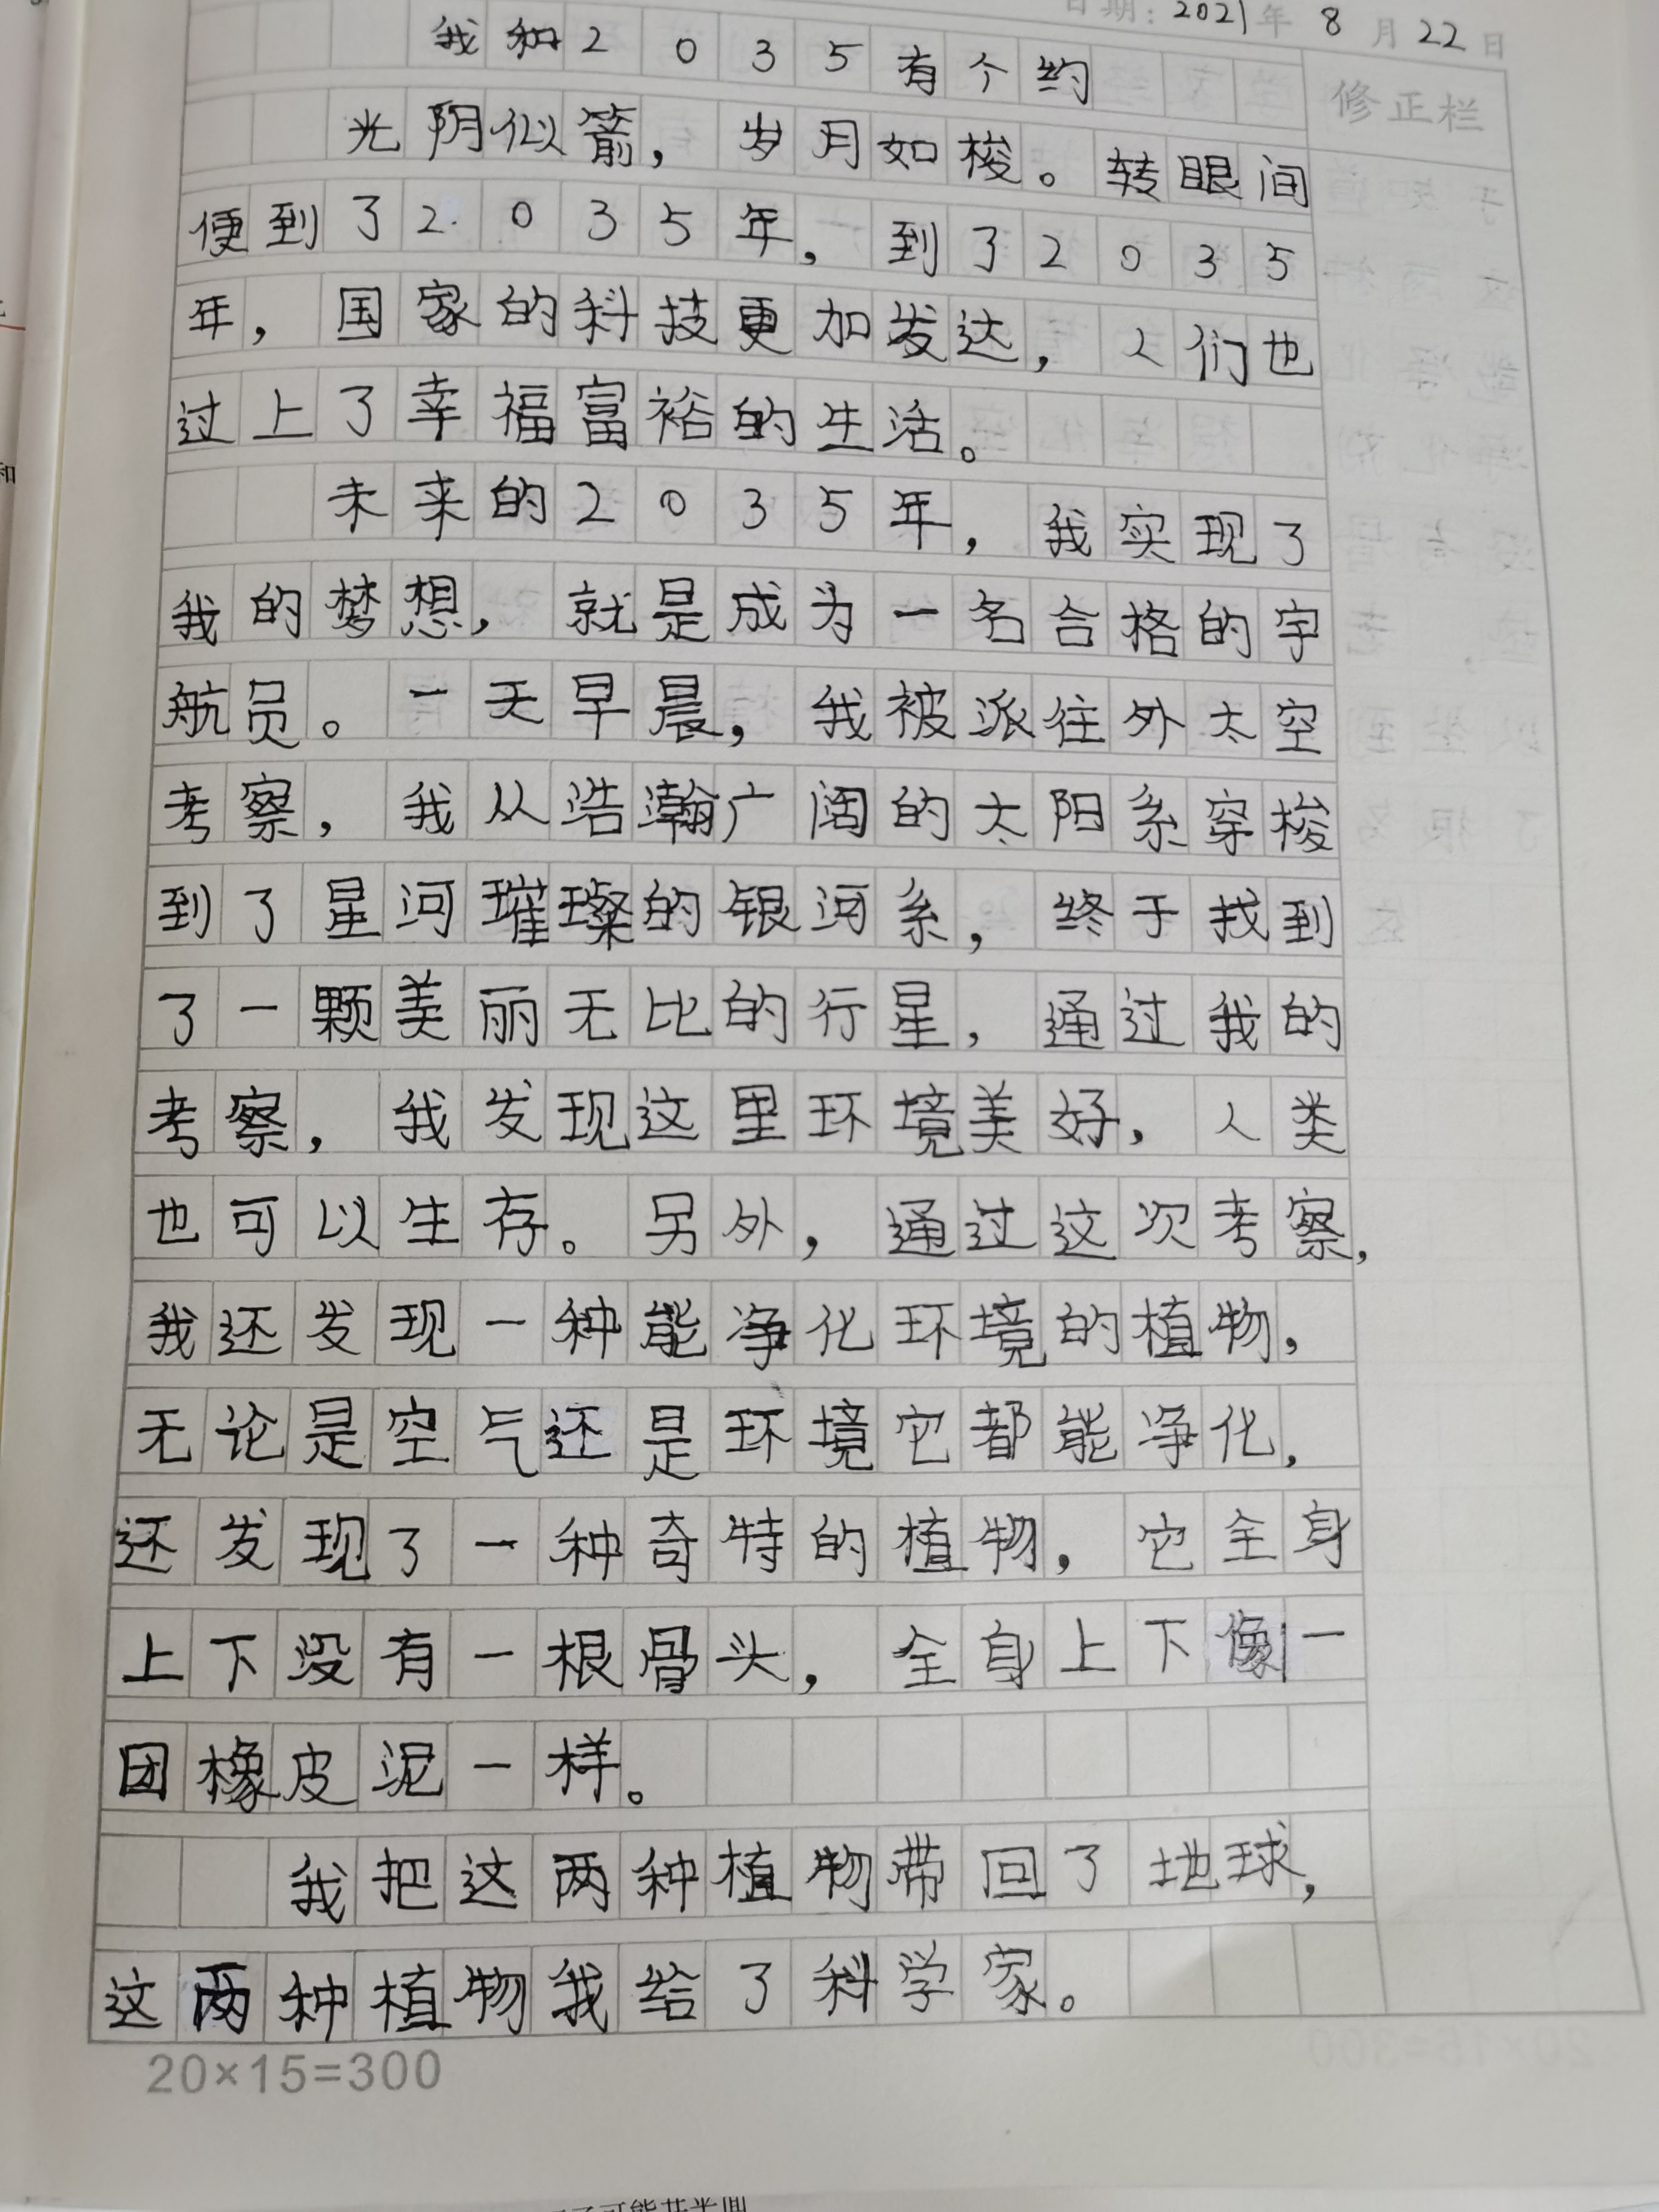 日期：2021年8月22日
我和2035有个约
修正栏
光阴似箭，岁月如梭。转眼间
便到了2035年，到了2035
年，国家的科技更加发达，人们也
过上了幸福富裕的生活。
未来的2035年，我实现了
我的梦想，就是成为一名合格的宇
航员。一天早晨，我被派往外太空
考察，我从浩瀚广阔的太阳系穿梭
到了星河璀璨的银河系，终于找到
了一颗美丽无比的行星，通过我的
考察，我发现这里环境美好，人类
也可以生存。另外，通过这次考察，
我还发现一种能净化环境的植物，
无论是空气还是环境它都能净化，
还发现了一种奇特的植物，它全身
上下没有一根骨头，全身上下像一
团橡皮泥一样。
我把这两种植物带回了地球，
这两种植物我给了科学家。
20×15=300